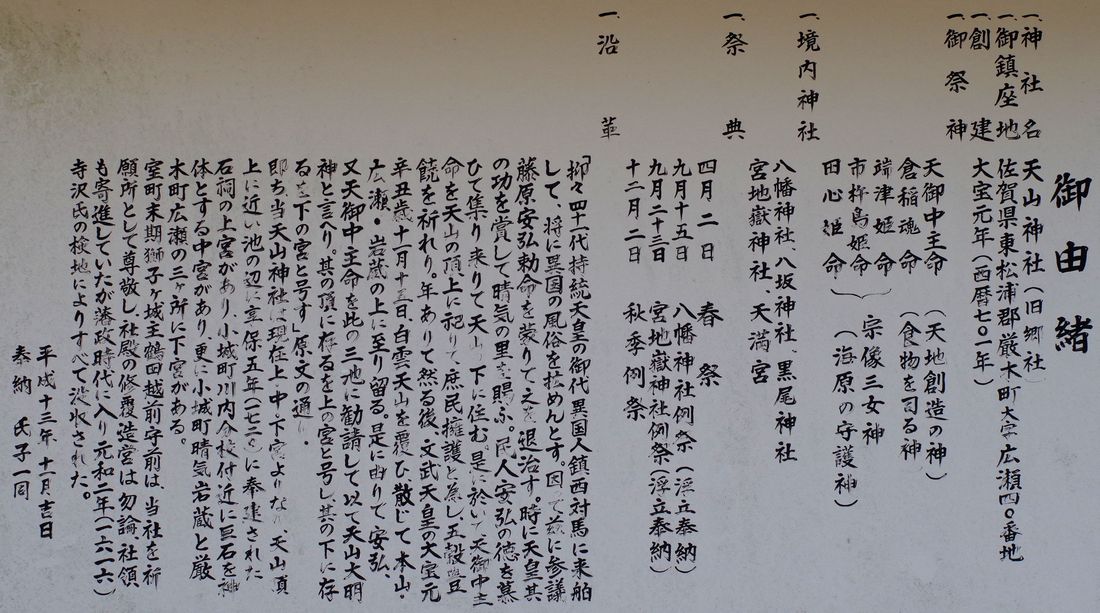 御由緒
一、神社名 天山神社(旧郷社)
一、御鎮座地 佐賀県東松浦郡厳木町大字広瀬四〇番地
一、創建 大宝元年(西暦七〇一年)
一、御祭神 天御中主命(天地創造の神)
倉稲魂命(食物を司る神)
端津姫命
市杵島姫命 宗像三女神(海原の守護神)
田心姫命
一、境内神社 八幡神社、八坂神社、黒尾神社
宮地嶽神社、天満宮
一、祭典 四月二日 春祭
九月十五日 八幡神社例祭(浮立奉納)
九月二十三日 宮地嶽神社例祭(浮立奉納)
十二月二日 秋季例祭
一、沿革
「抑々四十一代持統天皇の御代異国人鎮西対馬に来舶
して、将に異国の風俗を拡めんとす。因って茲に参議
藤原安弘勅命を蒙りて之を退治す。時に天皇其
の功を賞して晴気の里を賜ふ。民人安弘の徳を慕
ひて集り来りて天山の下に住む是に於いて天御中主
命を天山の頂上に祀りて庶民擁護と為し五穀豊
饒を祈れり。年ありて然る後、文武天皇の大宝元
辛丑歳十一月十五日、白雲天山を覆ひ散じて本山・
広瀬・岩蔵の上に至り留る。是に由りて安弘、
又天御中主命を此の三地に勧請して以て天山大明
神と言へり。其の頂に存るを上の宮と号し其の下に存
るを下の宮と号す」原文の通り
即ち当天山神社は現在上・中・下宮よりなり、天山頂
上に近い池の辺に享保五年(一七二〇)に奉建された
石祠の上宮があり、小城町川内分校付近に巨石を神
体とする中宮があり、更に小城町晴気岩蔵と厳
木町広瀬の三ヶ所に下宮がある。
室町末期獅子ヶ城主鶴田越前守前は当社を祈
願所として尊敬し、社殿の修覆、造営は勿論、社領
も寄進していたが藩政時代に入り元和二年(一六一六)
寺沢氏の検地によりすべて没収された。
平成十三年十一月吉日
奉納 氏子一同